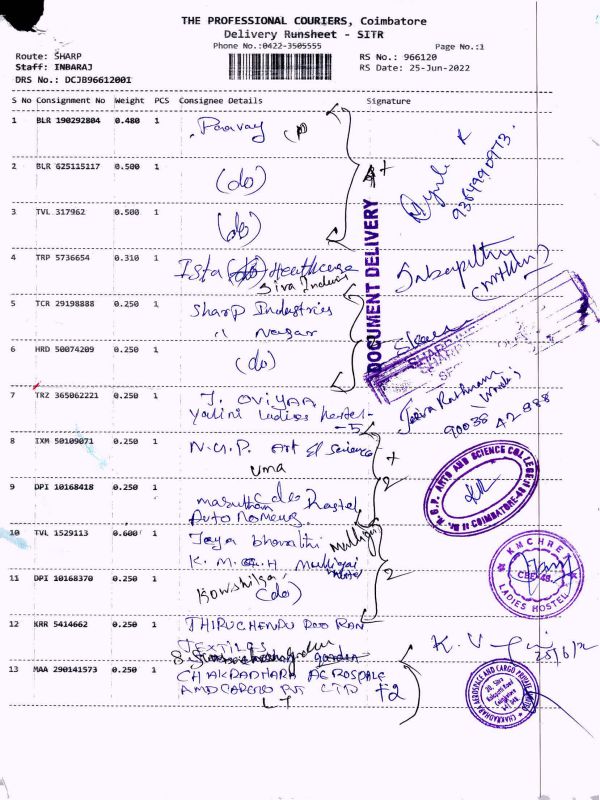 THE PROFESSIONAL COURIERS, Coimbatore
Delivery Runsheet - SITR
Phone No.:0422-3505555
Page No.:1
Route: SHARP
Staff: INBARAJ
DRS No.: DCJB96612001
RS No.: 966120
RS Date: 25-Jun-2022
S No Consignment No Weight PCS Consignee Details Signature
1 BLR 190292804 0.480 1
2 BLR 625115117 0.500 1 (do)
3 TVL 317962 0.500 1 (do)
DOCUMENT DELIVERY
4 TRP 5736654 0.310 1 Ista Healthcare
5 TCR 29198888 0.250 1 Sharp Industries
Nagar
6 HRD 50074209 0.250 1 (do)
7 TRZ 365062221 0.250 1 J. OVIYAA
Yalini Ladies
90038 42988
8 IXM 50109071 0.250 1 N.G.P. Art & Science
uma
N.G.P. ARTS AND SCIENCE COLLEGE
COIMBATORE-48
9 DPI 10168418 0.250 1 Hostel
2
10 TVL 1529113 0.600 1 Jaya bharathi mullai
K.M.C.H
KMCHRET
CBE-48.
LADIES HOSTEL
11 DPI 10168370 0.250 1 (do)
2
12 KRR 5414662 0.250 1
TEXTILES
K. V
25/6/2
13 MAA 290141573 0.250 1 CHAKRADHARA AEROSPACE
AND CARGO PVT LTD +2
CHAKRADHARA AEROSPACE AND CARGO PRIVATE LIMITED